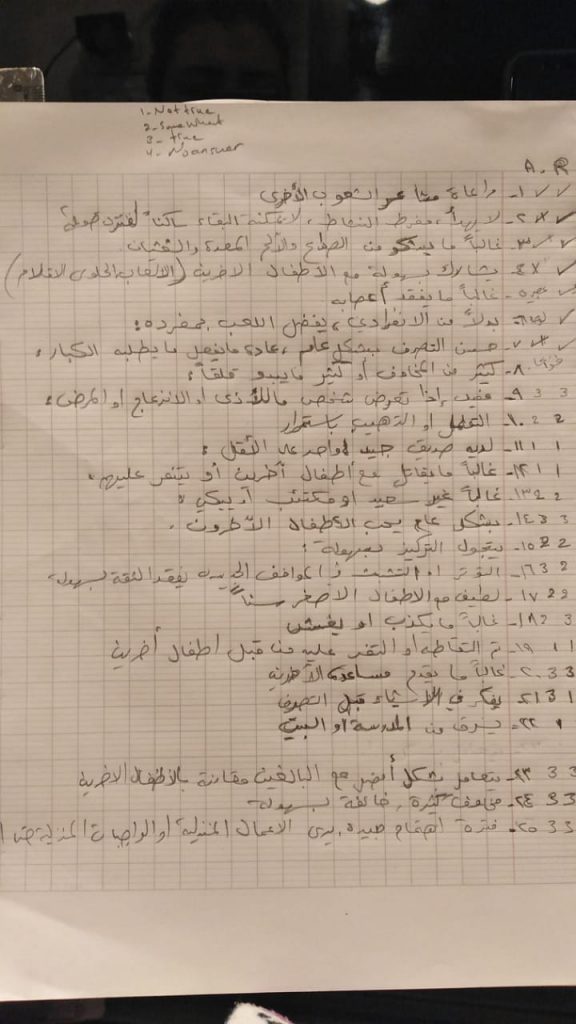 1- Not true
2- Somewhat
3- true
4- No answer
A. R
١- مراعاة مشاعر الشعوب الأخرى
٢- لا يهدأ، مفرط النشاط، لا يمكنه البقاء ساكناً لفترة طويلة
٣- غالباً ما يشكو من الصداع وألم المعدة والغثيان
٤- يشارك بسهولة مع الأطفال الآخرين (الألعاب الحلوى الاقلام)
٥- غالباً ما يفقد أعصابه
٦- بدلاً من الانفرادي، يفضل اللعب بمفرده
٧- حسن التصرف بشكل عام، عادة ما يفعل ما يطلبه الكبار
٨- كثير من المخاوف أو كثير ما يبدو قلقاً
3 3 ٩- مفيد إذا تعرض شخص ما للأذى أو الانزعاج او المرض
2 2 ١٠- التململ او باستمرار
1 1 ١١- لديه صديق جيد واحد على الأقل
1 1 ١٢- غالباً ما يقاتل مع أطفال آخرين أو يتنمر عليهم
2 2 ١٣- غالباً غير سعيد او مكتئب أو يبكي
3 3 ١٤- بشكل عام يحب الأطفال الآخرون
2 2 ١٥- يتجول التركيز بسهولة
2 3 ١٦- التوتر او التشبث في المواقف الجديدة يفقد الثقة بسهولة
2 2 ١٧- لطيف مع الاطفال الأصغر سناً
3 2 ١٨- غالباً ما يكذب او يغش
1 1 ١٩- تم التقاطه أو التنمر عليه من قبل اطفال آخرين
3 3 ٢٠- غالباً ما يقدم مساعدة الآخرين
1 3 ٢١- يفكر في الأشياء قبل التصرف
1 ٢٢- يسرق من المدرسة او البيت
3 3 ٢٣- يتعامل بشكل أفضل مع البالغين مقارنة بالأطفال الآخرين
3 3 ٢٤- مخاوف كثيرة، خائفة بسهولة
3 3 ٢٥- فترة اهتمام جيدة، يرى الاعمال المنزلية أو الواجبات المنزلية